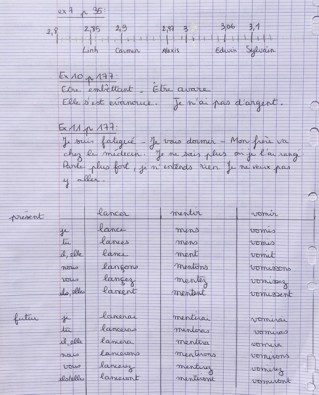 ex 7 p 95
2,8 2,85 2,9 2,97 3 3,06 3,1
Linh Carmen Alexis Edwin Sylvain
Ex 10 p 177
Etre embêttant. Être avare
Elle s'est évanouie. Je n'ai pas d'argent.
Ex 11 p 177
Je suis fatigué - Je vais dormir - Mon frère va
chez le médecin. Je ne sais plus où je l'ai rangé
Parle plus fort, je n'entends rien. Je ne veux pas
y aller.
présent lancer mentir vomir
je lance mens vomis
tu lances mens vomis
il, elle lance ment vomit
nous lançons mentons vomissons
vous lancez mentez vomissez
ils, elles lancent mentent vomissent
futur je lancerai mentirai vomirai
tu lanceras mentiras vomiras
il, elle lancera mentira vomira
nous lancerons mentirons vomirons
vous lancerez mentirez vomirez
ils, elles lanceront mentiront vomiront